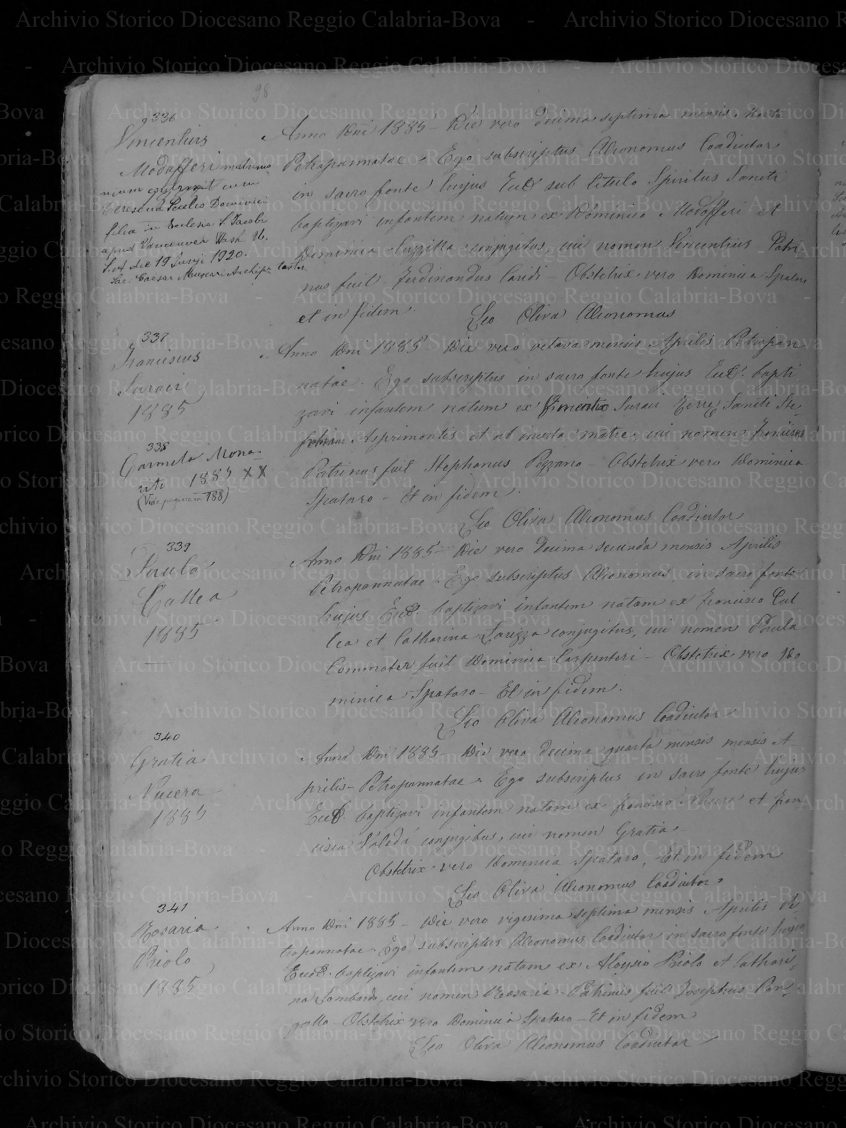 98
336
Vincentius
Modafferi matrimo
nium contraxit cum
Teresina
filia in Ecclesia S. Jacobi
apud Vancouver Wash. N.
die 19 Junii 1920.
Sac. Caesar Archip.
Anno Dni 1885 - Die vero decima septima mensis
Petrapannatae - Ego subscriptus Œconomus Coadiutor
in sacro fonte hujus Eccl. sub titulo Spiritus Sancti
baptizavi infantem natum ex Dominico Modafferi et
Dominica conjugibus, cui nomen Vincentius Patri
nus fuit Ferdinandus - Obstetrix vero Dominica Spataro
et in fidem.
Leo Oliva Œconomus
337
Franciscus
Suraci
1885
Anno Dni 1885 Die vero octava mensis Aprilis Petrapan
natae - Ego subscriptus in sacro fonte hujus Eccl. bapti
zavi infantem natum ex Suraci Sancti Ste
Asprimontis et ab incerta matre, cui nomen Franciscus
Patrinus fuit Stephanus Pizzano - Obstetrix vero Dominica
Spataro - Et in fidem.
Leo Oliva Œconomus Coadiutor
338
Carmela Mona
1884 XX
(Vide pagina 188)
339
Paula
Callea
1885
Anno Dni 1885 Die vero Decima secunda mensis Aprilis
Petrapannatae - Ego subscriptus Œconomus in sacro fonte
hujus Eccl. baptizavi infantem natam ex Francisco Cal
lea et Catharina conjugibus, cui nomen Paula
Commater fuit Dominica Carpenteri - Obstetrix vero Do
minica Spataro - Et in fidem.
Leo Oliva Œconomus Coadiutor
340
Gratia
Nucera
1885
Anno Dni 1885 - Die vero decima quarta mensis mensis A
prilis - Petrapannatae - Ego subscriptus in sacro fonte hujus
Eccl. baptizavi infantem natam ex et Fran
cisca conjugibus, cui nomen Gratia.
Obstetrix vero Dominica Spataro, Et in fidem
Leo Oliva Œconomus Coadiutor
341
Rosaria
Priolo
1885
Anno Dni 1885 - Die vero vigesima septima mensis Aprilis Pe
trapannatae - Ego subscriptus Œconomus Coadiutor in sacro fonte hujus
Eccl. baptizavi infantem natam ex Aloysio Priolo et Cathari
na cui nomen Rosaria - Patrinus fuit Josephus Pan
gallo - Obstetrix vero Dominica Spataro - Et in fidem
Leo Oliva Œconomus Coadiutor
Archivio Storico Diocesano Reggio Calabria-Bova